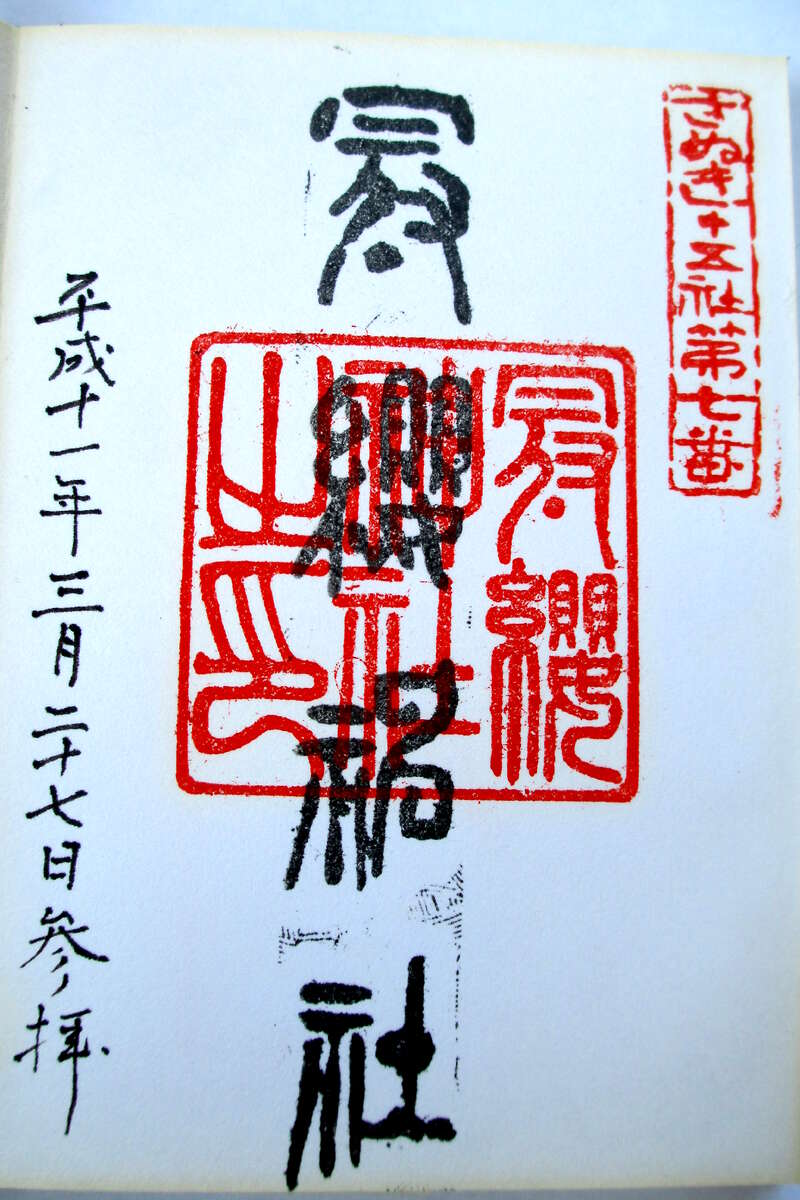 さぬき十五社第七番
冠纓神社
冠纓
神社
之印
平成十一年三月二十七日参拝